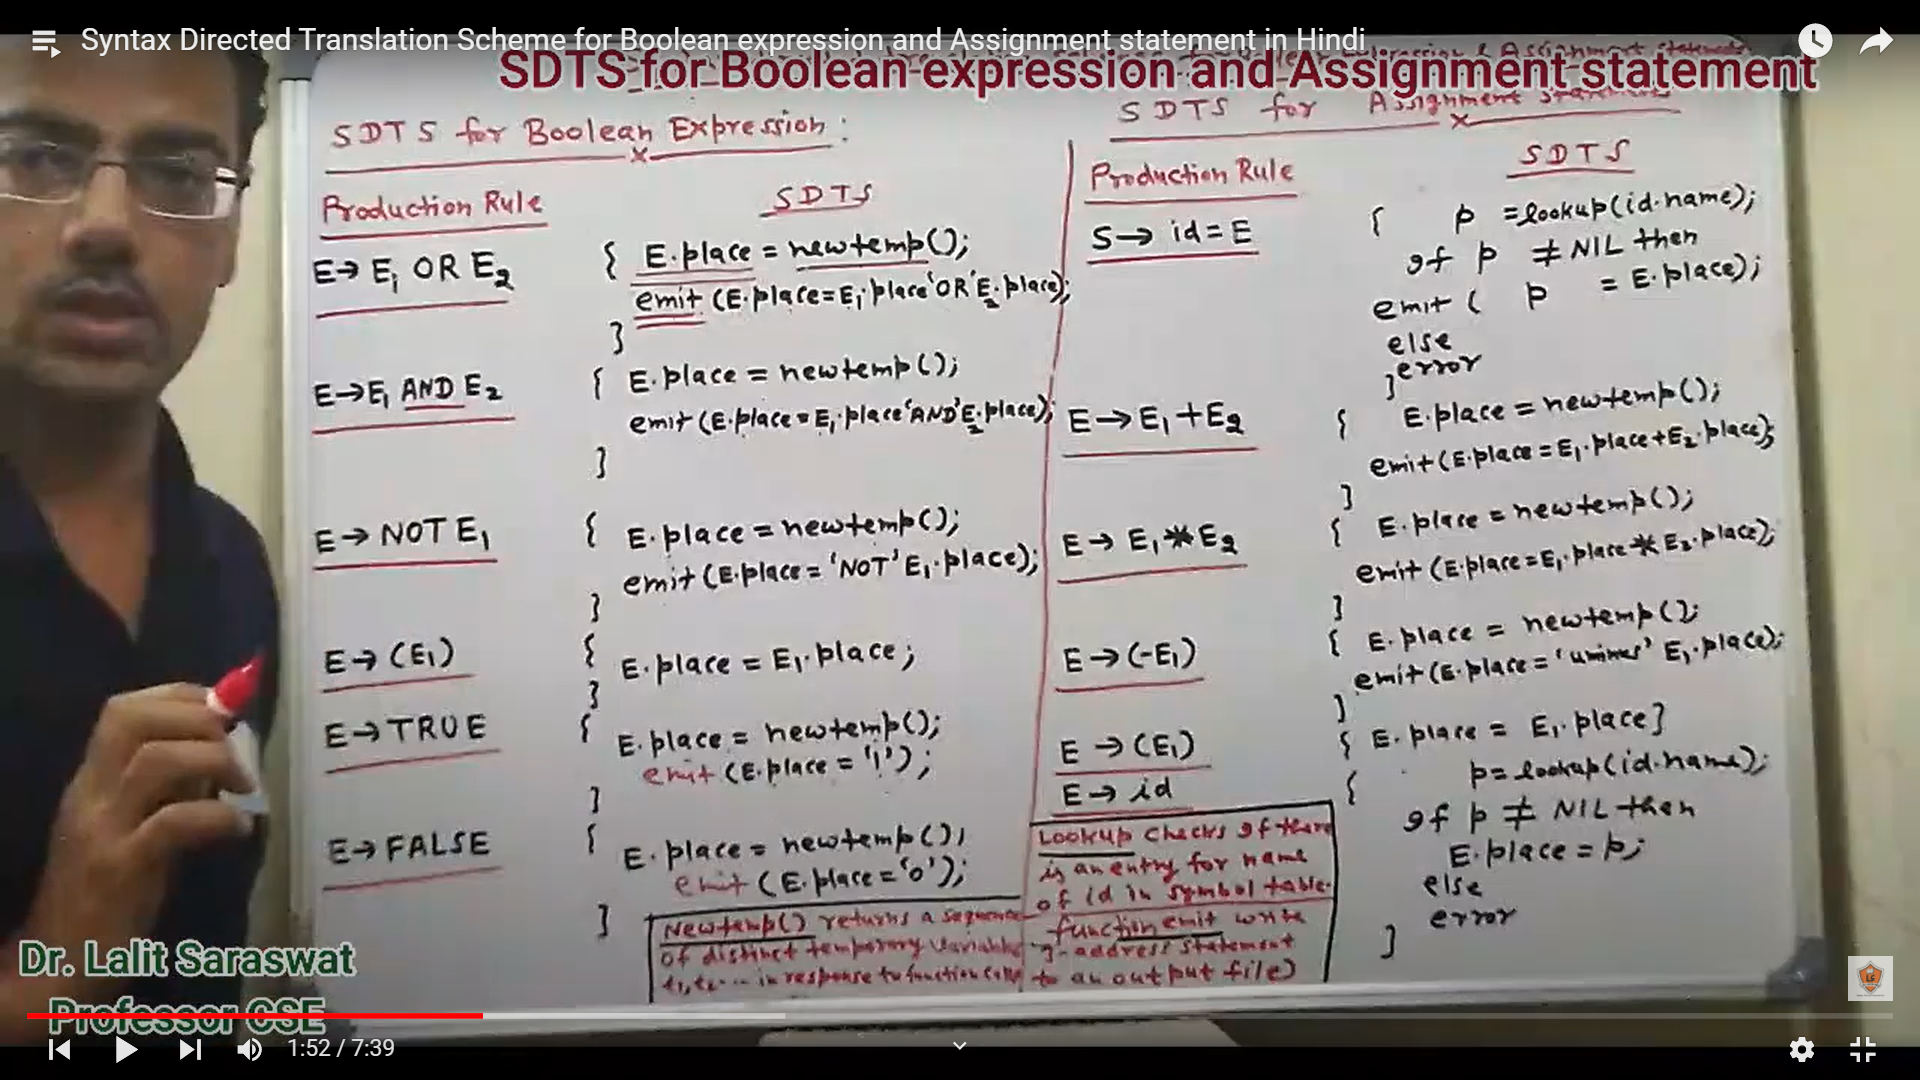 Syntax Directed Translation Scheme for Boolean expression and Assignment statement in Hindi
SDTS for Boolean expression and Assignment statement
SDTS for Boolean Expression:
Production Rule
SDTS
E→ E1 OR E2
{ E.place = newtemp();
emit (E.place=E1.place'OR'E2.place);
}
E→E1 AND E2
{ E.place = newtemp();
emit (E.place=E1.place'AND'E2.place);
}
E→ NOT E1
{ E.place = newtemp();
emit (E.place= 'NOT' E1.place);
}
E→ (E1)
{ E.place = E1.place;
}
E→TRUE
{ E.place = newtemp();
emit (E.place = '1');
}
E→FALSE
{ E.place = newtemp();
emit (E.place='0');
}
Newtemp() returns a sequence
of distinct temporary variables
t1,t2... in response to function calls
SDTS for Assignment
Production Rule
SDTS
S→ id=E
{ p =lookup(id.name);
If p ≠NIL then
emit ( p = E.place);
else
error
}
E→E1+E2
{ E.place = newtemp();
emit (E.place=E1.place+E2.place);
}
E→ E1*E2
{ E.place = newtemp();
emit (E.place=E1.place*E2.place);
}
E→(-E1)
{ E.place = newtemp();
emit (E.place='uminus' E1.place);
}
E →(E1)
{ E.place = E1.place}
E→ id
{ p=lookup(id.name);
If p ≠ NIL then
E.place = p;
else
error
}
Lookup checks If there
is an entry for name
of id in symbol table.
function emit write
3-address statement
to an output file)
Dr. Lalit Saraswat
Professor CSE
1:52 / 7:39